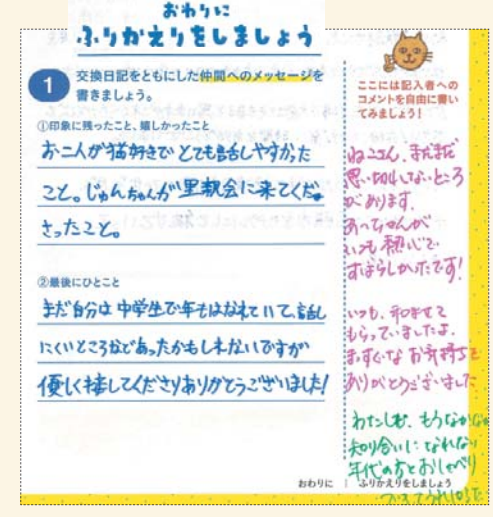 おわりに
ふりかえりをしましょう
1
交換日記をともにした仲間へのメッセージを
書きましょう。
①印象に残ったこと、嬉しかったこと
お二人が猫好きで とても話しやすかった
こと。じゅんちゃんが里親会に来てくだ
さったこと。
②最後にひとこと
まだ自分は 中学生で年もはなれていて、話し
にくいところなどあったかもしれないですが
優しく接してくださりありがとうございました!
ここには記入者への
コメントを自由に書い
てみましょう!
ねこさん、まだまだ
ところ
があります。
あっちゃんが
いつも 熱心で
すばらしかったです!
いつも、和ませて
もらっていましたよ。
まっすぐな お気持ちを
ありがとうございました
わたしも、もうなかなか
知り合いになれない
年代の方とおしゃべり
できてうれしかった
おわりに | ふりかえりをしましょう